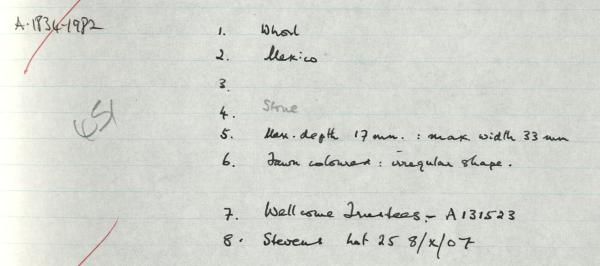 A.1834-1982
1. Whorl
2. Mexico
3.
4. Stone
5. Max. depth 17 mm. : max width 33 mm
6. Fawn coloured : irregular shape.
7. Wellcome Trustees - A131523
8. Stevens lot 25 8/x/07